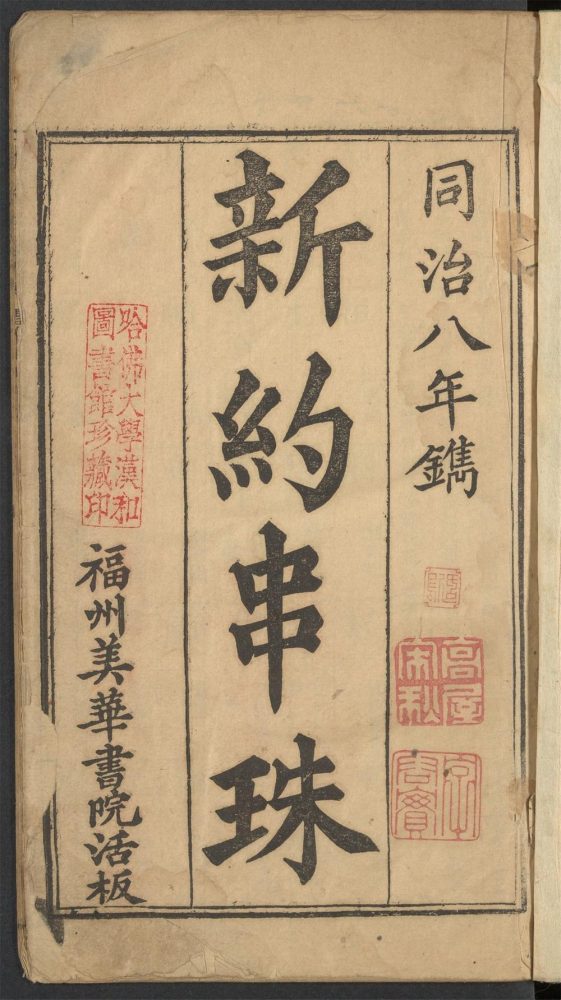 同治八年鐫
新約串珠
哈佛大學漢和
圖書館珍藏印
福州美華書院活板